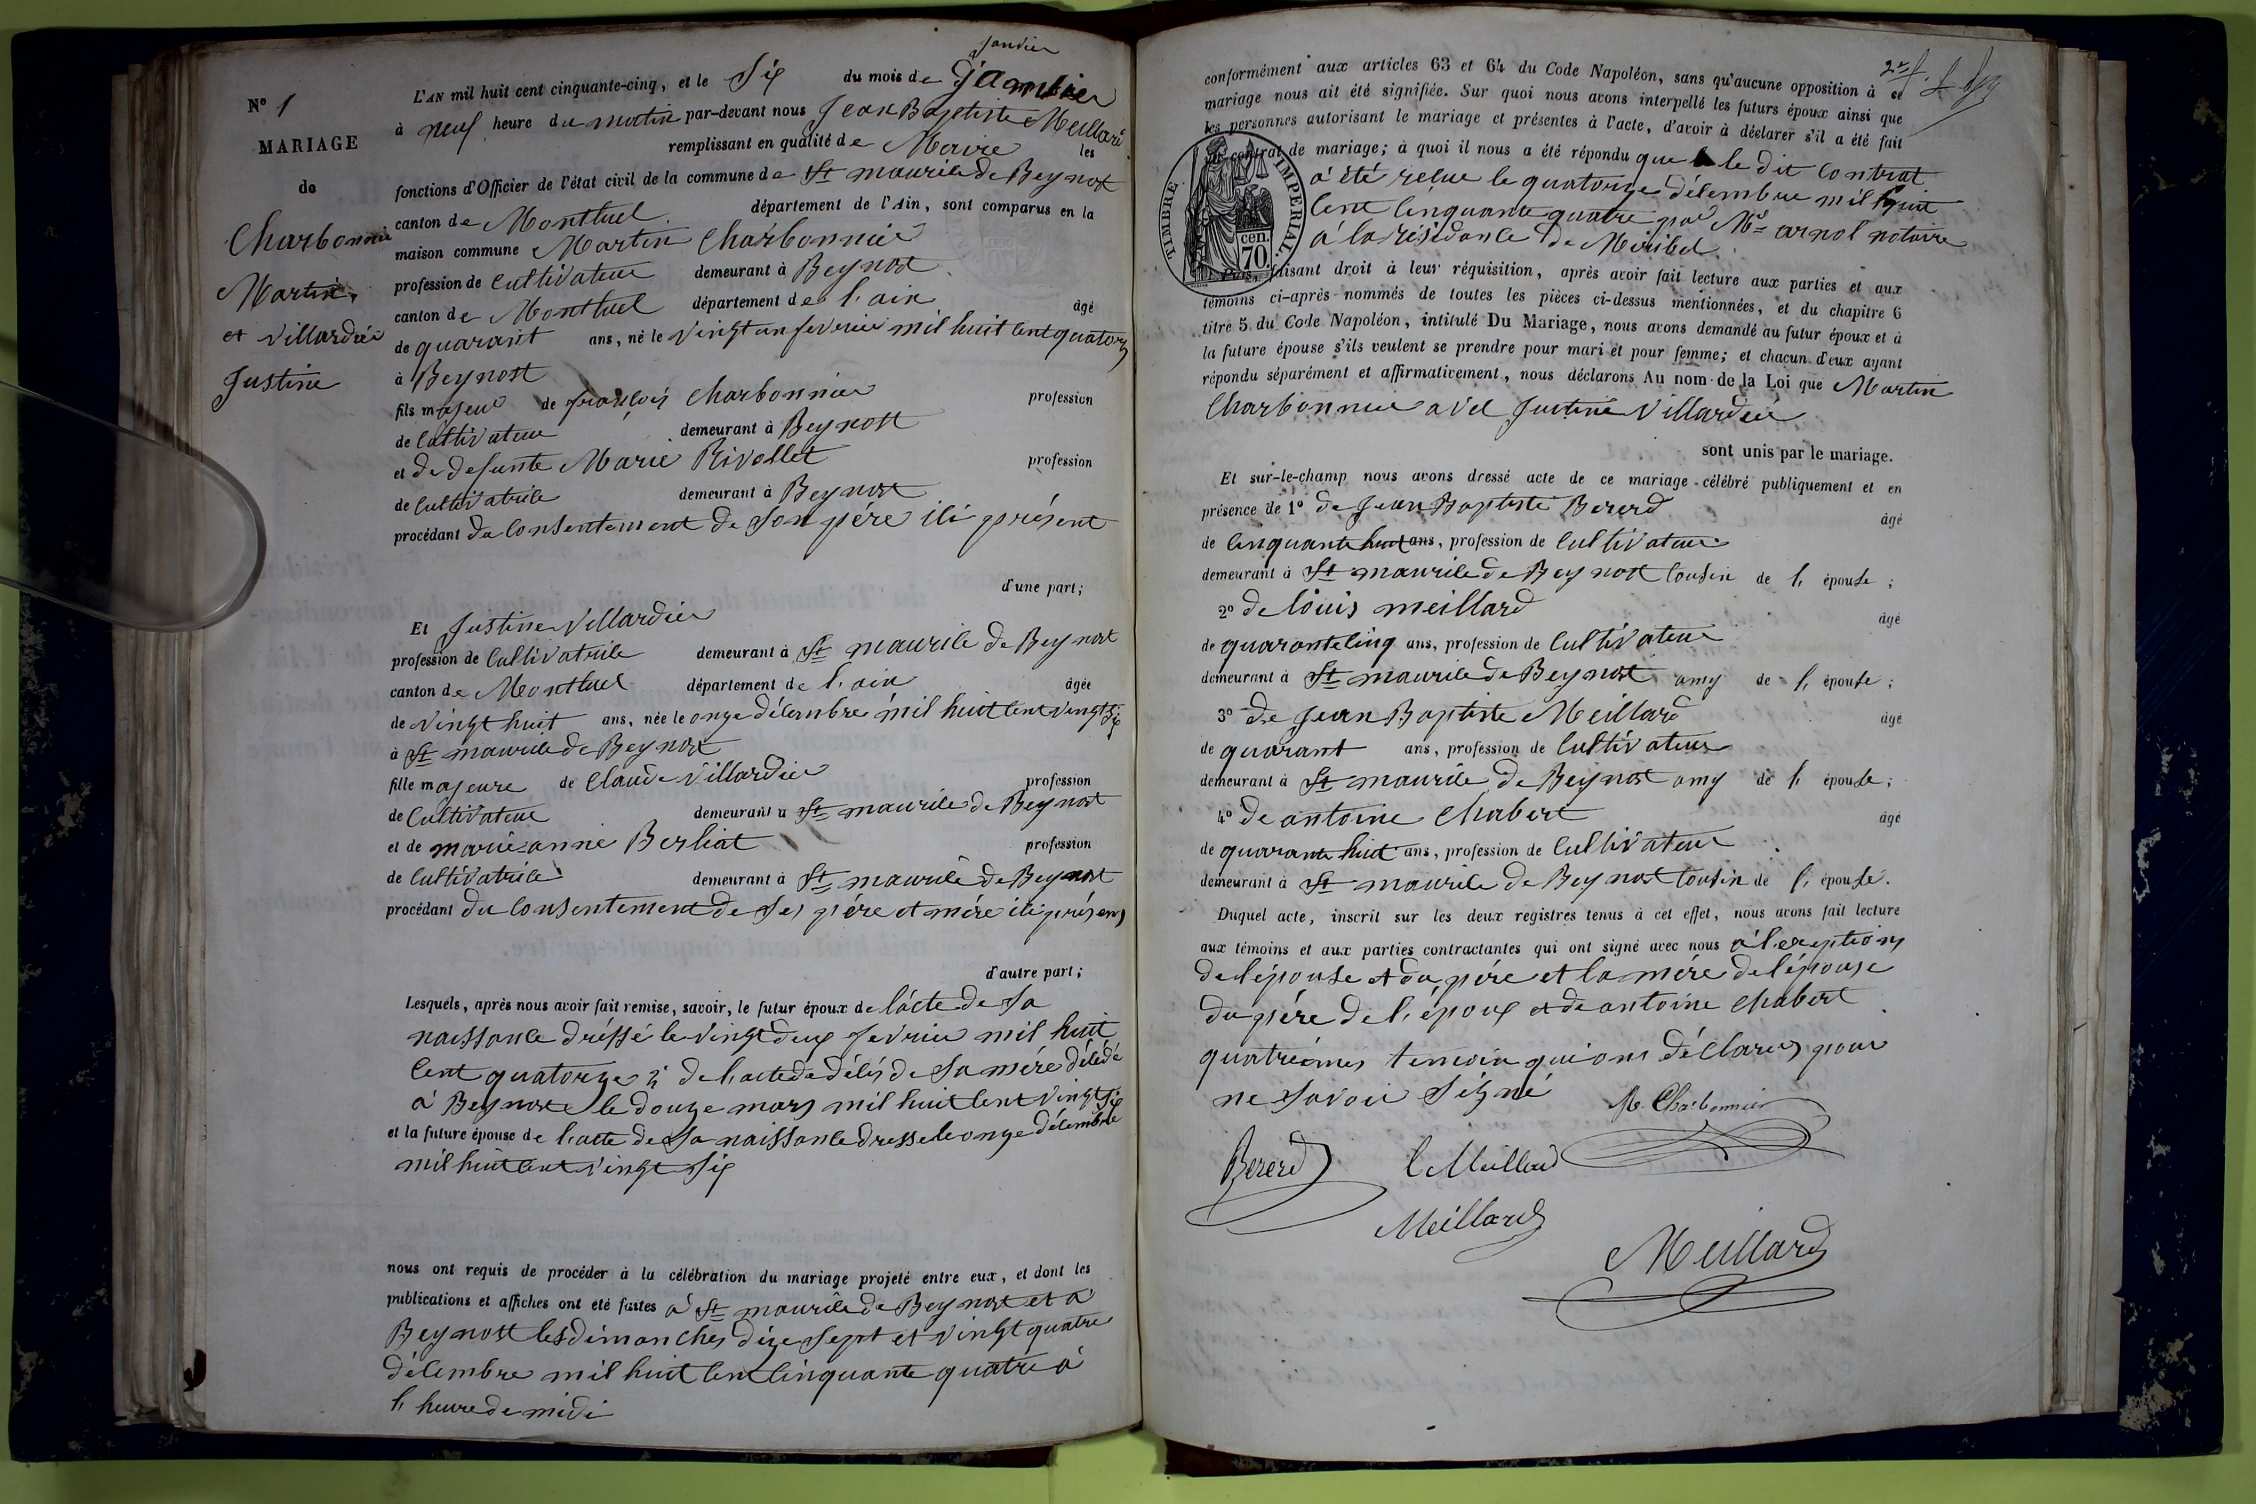 Janvier
N° 1
MARIAGE
de
Charbonnier
Martin,
et Villardier
Justine
L'AN mil huit cent cinquante-cinq, et le Six du mois de Janvier
à neuf heure du matin par-devant nous Jean Baptiste Meillard
remplissant en qualité de Maire les
fonctions d'Officier de l'état civil de la commune de St maurice de Beynost
canton de Montluel département de l'Ain, sont comparus en la
maison commune Martin Charbonnier
profession de cultivateur demeurant à Beynost
canton de Montluel département de l'ain âgé
de quarant ans, né le vingt un fevrier mil huit cent quatorz
à Beynost
fils majeur de françois Charbonnier profession
de Cultivateur demeurant à Beynost
et de defunte Marie Rivollet profession
de Cultivatrice demeurant à Beynost
procédant du Consentement de son père ici présent
d'une part;
Et Justine Villardier
profession de Cultivatrice demeurant à St maurice de Beynost
canton de Montluel département de l'ain âgée
de vingt huit ans, née le onze décembre mil huit cent vingt six
à St maurice de Beynost
fille majeure de Claude Villardier profession
de Cultivateur demeurant à St maurice de Beynost
et de marie anne Berliat profession
de Cultivatrice demeurant à St maurice de Beynost
procédant du Consentement de ses père et mère ici présens
d'autre part;
Lesquels, après nous avoir fait remise, savoir, le futur époux de l'acte de sa
naissance dréssé le vingt deux fevrier mil huit
cent quatorze 2° de l'acte de décés de sa mére décédé
à Beynost le douze mars mil huit cent vingt six
et la future épouse de l'acte de sa naissance dressé le onze décembre
mil huit cent vingt six
nous ont requis de procéder à la célébration du mariage projeté entre eux, et dont les
publications et affiches ont été faites à St maurice de Beynost et à
Beynost les dimanches dize sept et vingt quatre
décembre mil huit cent cinquante quatre à
l'heure de midi
conformément aux articles 63 et 64 du Code Napoléon, sans qu'aucune opposition à ce
mariage nous ait été signifiée. Sur quoi nous avons interpellé les futurs époux ainsi que
les personnes autorisant le mariage et présentes à l'acte, d'avoir à déclarer s'il a été fait
un contrat de mariage; à quoi il nous a été répondu que le dit Contrat
à été reçue le quatorze décembre mil huit
cent cinquante quatre par Me arnol notaire
à la résidance de Miribel
TIMBRE IMPERIAL
cen.
70
Puis, faisant droit à leur réquisition, après avoir fait lecture aux parties et aux
témoins ci-après nommés de toutes les pièces ci-dessus mentionnées, et du chapitre 6
titre 5 du Code Napoléon, intitulé Du Mariage, nous avons demandé au futur époux et à
la future épouse s'ils veulent se prendre pour mari et pour femme; et chacun d'eux ayant
répondu séparément et affirmativement, nous déclarons Au nom de la Loi que Martin
Charbonnier avec Justine Villardier
sont unis par le mariage.
Et sur-le-champ nous avons dressé acte de ce mariage célébré publiquement et en
présence de 1° de Jean Baptiste Bererd âgé
de cinquante huit ans, profession de Cultivateur
demeurant à St maurice de Beynost Cousin de l'épouse;
2° de louis meillard âgé
de quarante cinq ans, profession de Cultivateur
demeurant à St maurice de Beynost amy de l'épouse;
3° de Jean Baptiste Meillard âgé
de quarant ans, profession de Cultivateur
demeurant à St maurice de Beynost amy de l'épouse;
4° de antoine Chabert âgé
de quarante huit ans, profession de Cultivateur
demeurant à St maurice de Beynost Cousin de l'épouse.
Duquel acte, inscrit sur les deux registres tenus à cet effet, nous avons fait lecture
aux témoins et aux parties contractantes qui ont signé avec nous à l'exeption
de l'épouse et du pére et la mére de l'épouse
du pére de l'époux et de antoine Chabert
quatriémes temoin qui ont déclarés pour
ne savoir signé
M. Charbonnier
Bererd
L Meillard
Meillard
Meillard